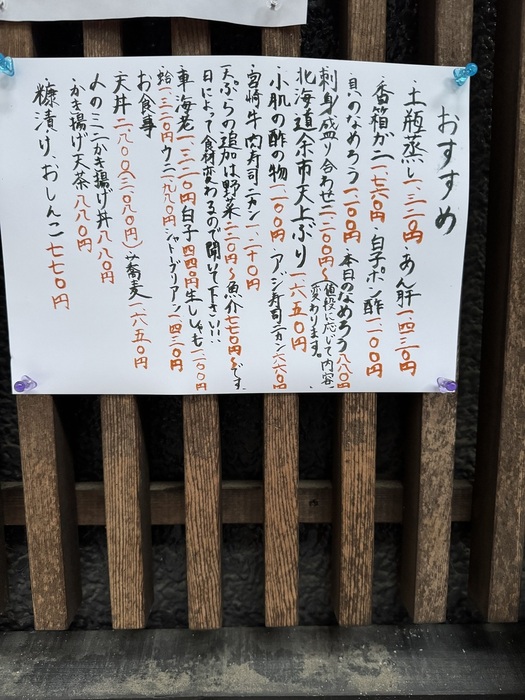 おすすめ
土瓶蒸し一.三二〇円 あん肝一.四三〇円
香箱ガニ一.七六〇円 白子ポン酢一.一〇〇円
貝のなめろう一.一〇〇円 本日のなめろう八八〇円
刺身盛り合わせ二.二〇〇円〜値段に応じて内容変わります。
北海道余市天上ぶり一六五〇円
小肌の酢の物一.一〇〇円 アジ寿司二カン六六〇円
宮崎牛肉寿司二カン一.二十〇円
天ぷらの追加は野菜二二〇円〜魚介七七〇円〜です
日によって食材変わるので聞いて下さい!!
車海老一.三二〇円 白子四四〇円 生しゃも一.一〇〇円
蛤一.三二〇円 ウニ一.九八〇円 シャトーブリアン一四三〇円
お食事
天丼二.八〇〇(三.〇八〇円) 蕎麦一.六五〇円
〆のミニかき揚げ丼八八〇円
かき揚げ天茶八八〇円
糠漬け、おしんこ七七〇円